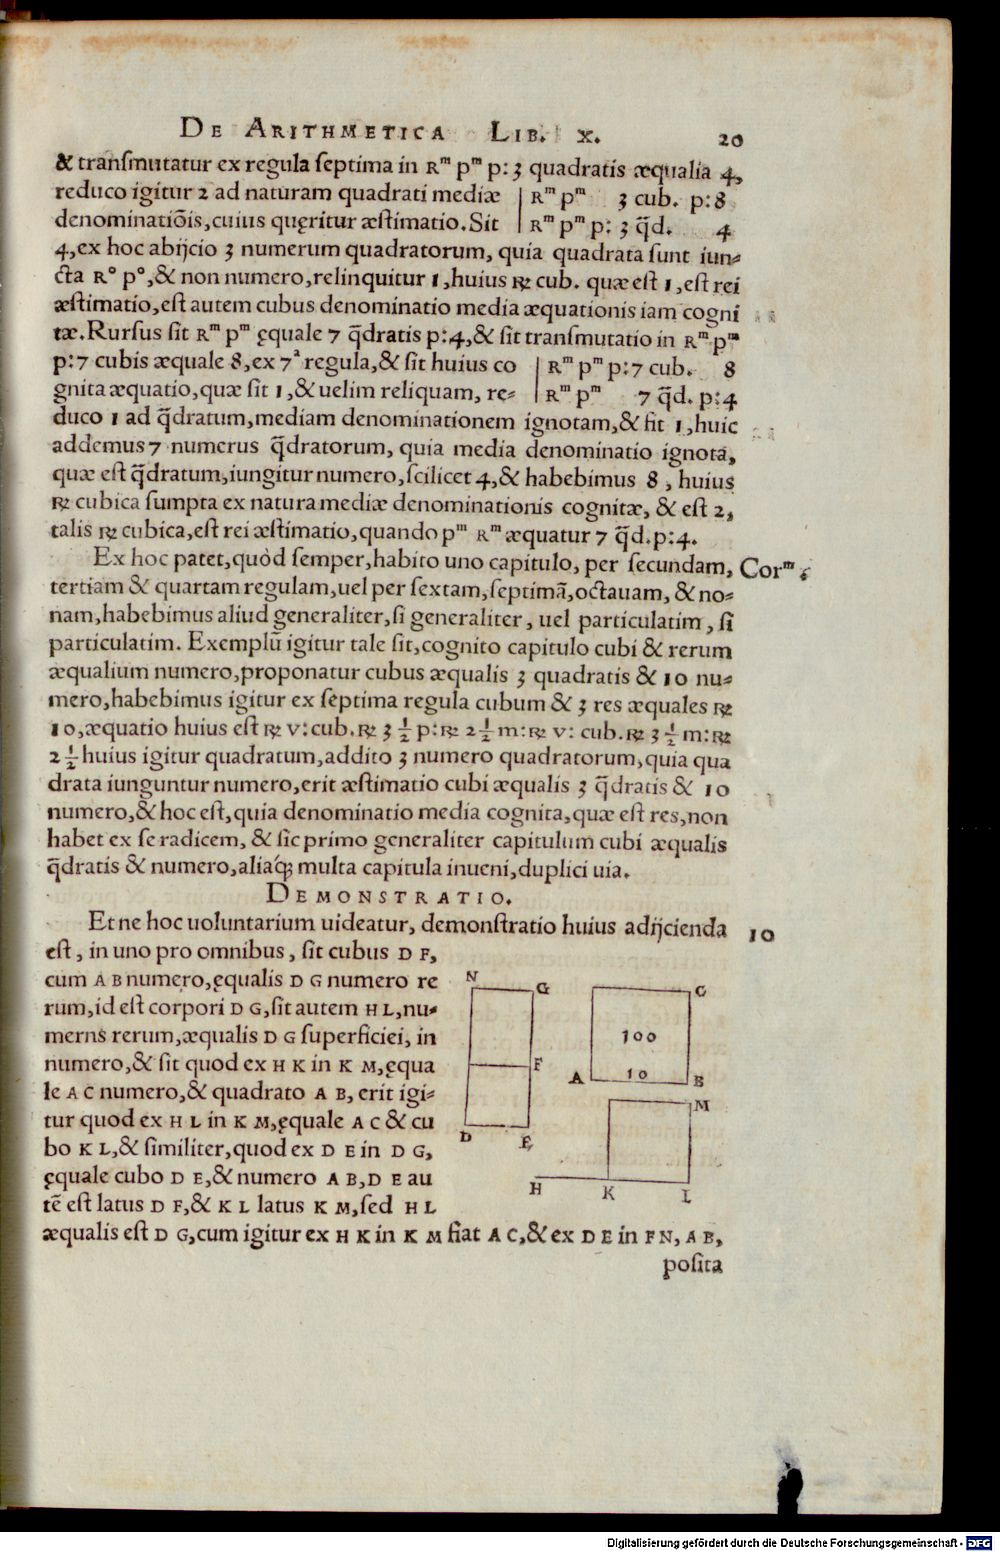 DE ARITHMETICA LIB. X. 20
& transmutatur ex regula septima in Rᵐ pᵐ p: 3 quadratis æqualia 4,
reduco igitur 2 ad naturam quadrati mediæ | Rᵐ pᵐ 3 cub. p: 8
denominatiōis, cuius quęritur æstimatio. Sit | Rᵐ pᵐ p: 3 q̃d. 4
4, ex hoc abijcio 3 numerum quadratorum, quia quadrata sunt iun-
cta R° p°, & non numero, relinquitur 1, huius ℞ cub. quæ est 1, est rei
æstimatio, est autem cubus denominatio media æquationis iam cogni
tæ. Rursus sit Rᵐ pᵐ ęquale 7 q̃dratis p: 4, & sit transmutatio in Rᵐ pᵐ
p: 7 cubis æquale 8, ex 7ᵃ regula, & sit huius co | Rᵐ pᵐ p: 7 cub. 8
gnita æquatio, quæ sit 1, & uelim reliquam, re- | Rᵐ pᵐ 7 q̃d. p: 4
duco 1 ad q̃dratum, mediam denominationem ignotam, & fit 1, huic
addemus 7 numerus q̃dratorum, quia media denominatio ignota,
quæ est q̃dratum, iungitur numero, scilicet 4, & habebimus 8, huius
℞ cubica sumpta ex natura mediæ denominationis cognitæ, & est 2,
talis ℞ cubica, est rei æstimatio, quando pᵐ Rᵐ æquatur 7 q̃d. p: 4.
Ex hoc patet, quòd semper, habito uno capitulo, per secundam, Corᵐ.
tertiam & quartam regulam, uel per sextam, septimā, octauam, & no-
nam, habebimus aliud generaliter, si generaliter, uel particulatim, si
particulatim. Exemplū igitur tale sit, cognito capitulo cubi & rerum
æqualium numero, proponatur cubus æqualis 3 quadratis & 10 nu-
mero, habebimus igitur ex septima regula cubum & 3 res æquales ℞
10, æquatio huius est ℞ v: cub. ℞ 3 1/2 p: ℞ 2 1/2 m: ℞ v: cub. ℞ 3 1/2 m: ℞
2 1/2 huius igitur quadratum, addito 3 numero quadratorum, quia qua
drata iunguntur numero, erit æstimatio cubi æqualis 3 q̃dratis & 10
numero, & hoc est, quia denominatio media cognita, quæ est res, non
habet ex se radicem, & sic primo generaliter capitulum cubi æqualis
q̃dratis & numero, aliaq́; multa capitula inueni, duplici uia.
DEMONSTRATIO.
Et ne hoc uoluntarium uideatur, demonstratio huius adijcienda 10
est, in uno pro omnibus, sit cubus D F,
cum A B numero, ęqualis D G numero re
rum, id est corpori D G, sit autem H L, nu-
merus rerum, æqualis D G superficiei, in
numero, & sit quod ex H K in K M, ęqua
le A C numero, & quadrato A B, erit igi-
tur quod ex H L in K M, ęquale A C & cu
bo K L, & similiter, quod ex D E in D G,
ęquale cubo D E, & numero A B, D E au
tē est latus D F, & K L latus K M, sed H L
æqualis est D G, cum igitur ex H K in K M fiat A C, & ex D E in F N, A B,
posita
N G C
100
F A 10 B
M
D E
H K L
Digitalisierung gefördert durch die Deutsche Forschungsgemeinschaft - DFG